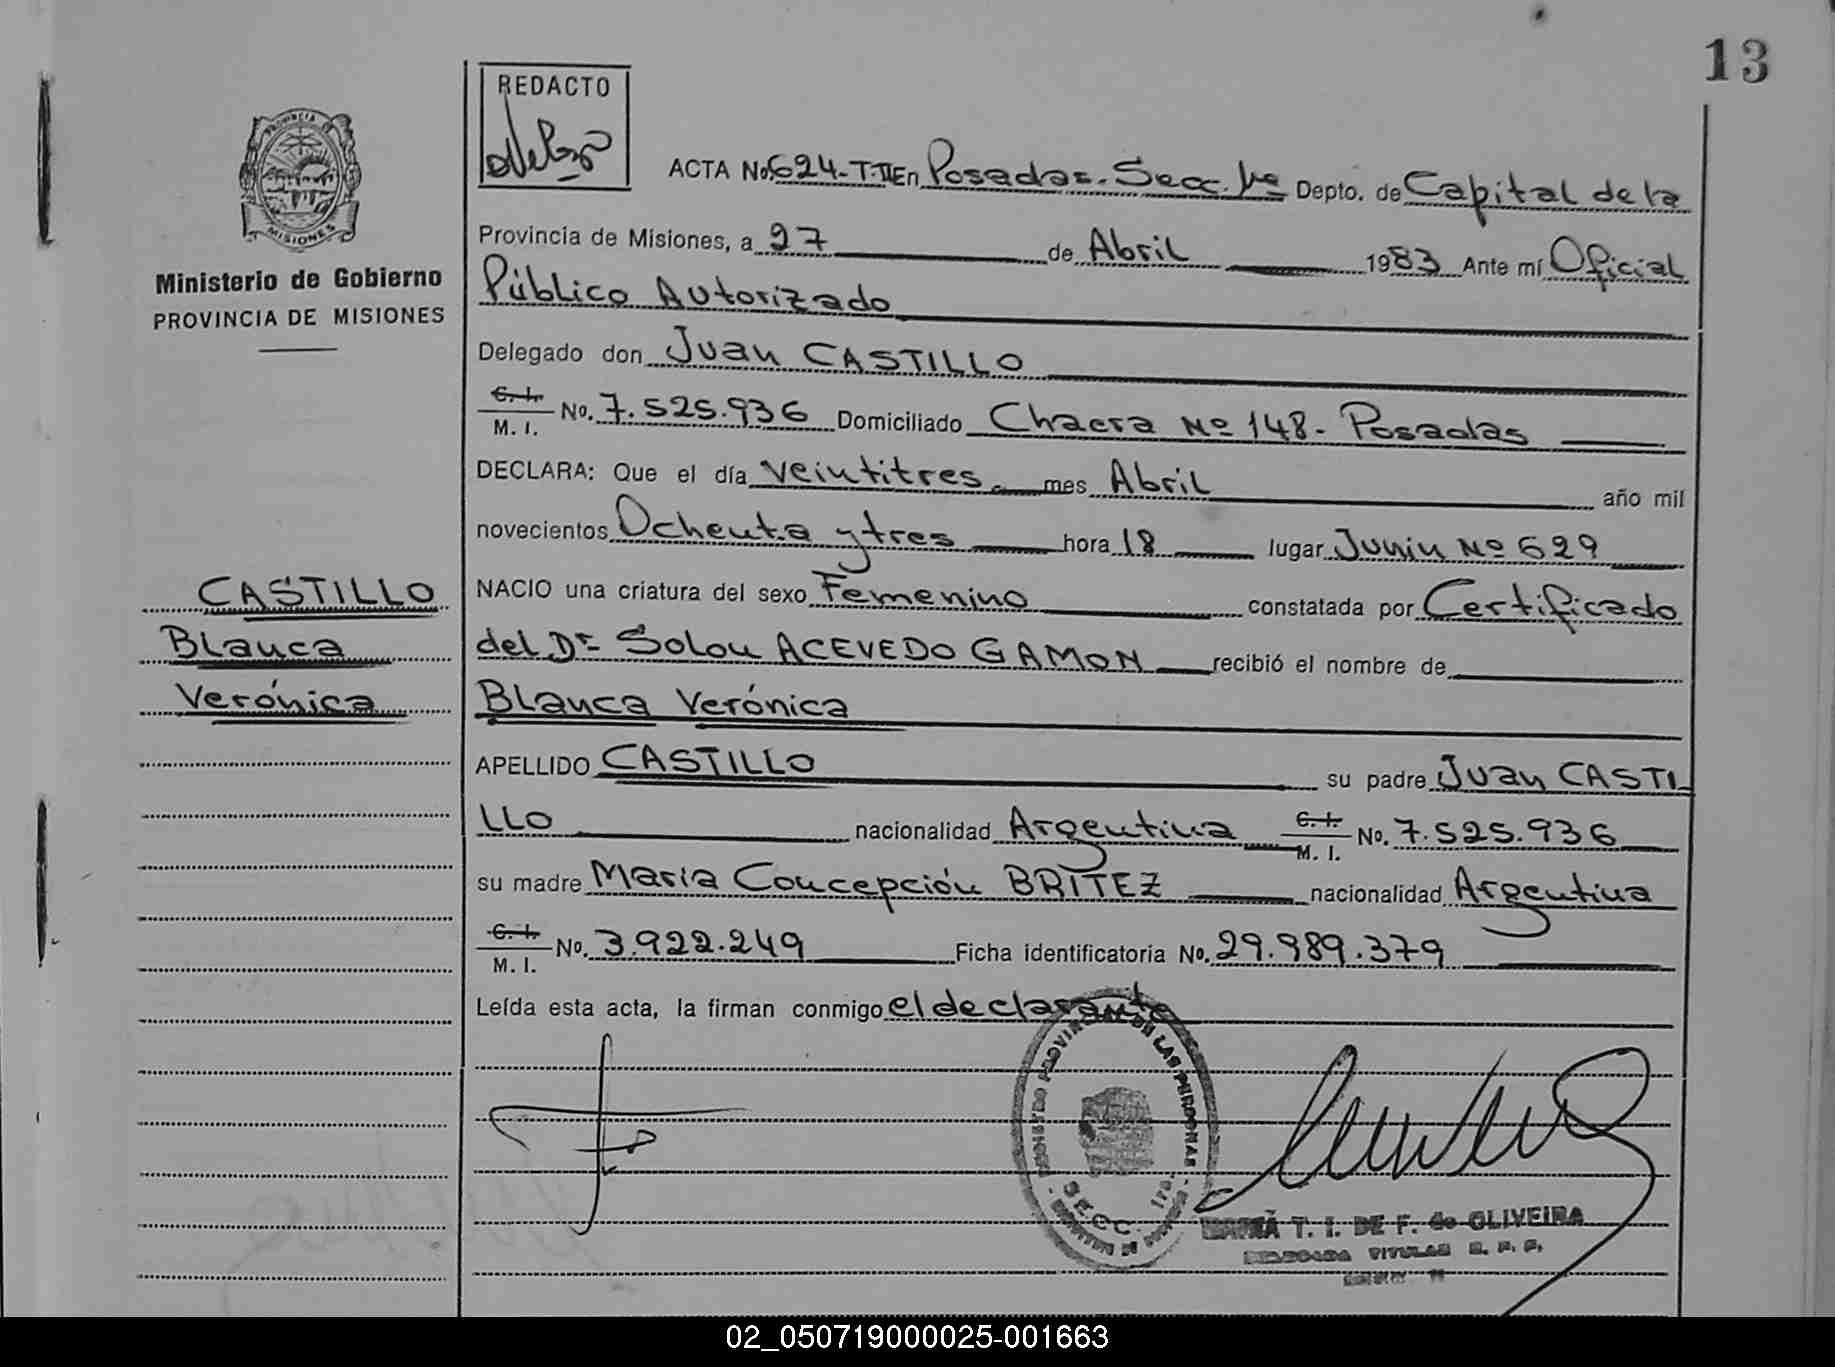 13
REDACTO
ACTA No. 624-T-II En Posadas. Secc. 1ª Depto. de Capital de la
Provincia de Misiones, a 27 de Abril 1983 Ante mí Oficial
Público Autorizado
Delegado don Juan CASTILLO
C. I. M. I. No. 7.525.936 Domiciliado Chacra Nº 148 - Posadas
DECLARA: Que el día veintitres mes Abril año mil
novecientos Ochenta y tres hora 18 lugar Junin Nº 629
NACIO una criatura del sexo Femenino constatada por Certificado
del Dr Solon ACEVEDO GAMON recibió el nombre de
Blanca Verónica
APELLIDO CASTILLO su padre Juan CASTI
LLO nacionalidad Argentina C. I. M. I. No. 7.525.936
su madre María Concepción BRITEZ nacionalidad Argentina
C. I. M. I. No. 3.922.249 Ficha identificatoria No. 29.989.379
Leída esta acta, la firman conmigo el declarante
PROVINCIA DE
MISIONES
Ministerio de Gobierno
PROVINCIA DE MISIONES
CASTILLO
Blanca
Verónica
PROVINCIAL DE LAS PERSONAS
SECC. 1ra.
T. I. DE F. de OLIVEIRA
TITULAR
02_050719000025-001663